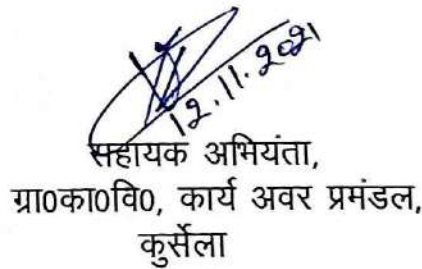 12.11.2021
सहायक अभियंता,
ग्रा0का0वि0, कार्य अवर प्रमंडल,
कुर्सेला